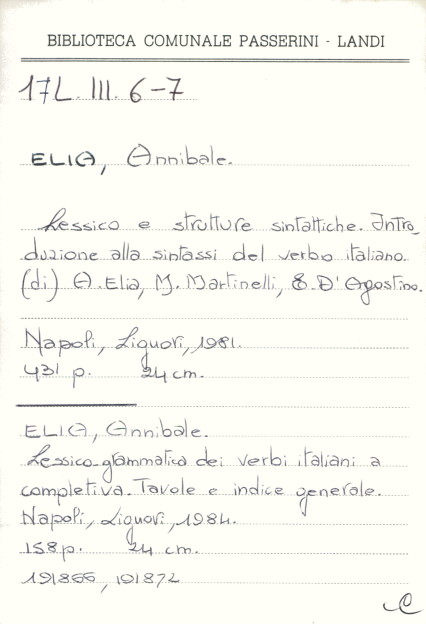 BIBLIOTECA COMUNALE PASSERINI - LANDI
17L. III. 6-7
ELIA, Annibale.
Lessico e strutture sintattiche. Intro_
duzione alla sintassi del verbo italiano.
(di) A. Elia, M. Martinelli, E. D'Agostino.
Napoli, Liguori, 1981.
431 p. 24 cm.
ELIA, Annibale.
Lessico-grammatica dei verbi italiani a
completiva. Tavole e indice generale.
Napoli, Liguori, 1984.
158 p. 24 cm.
191866, 191872